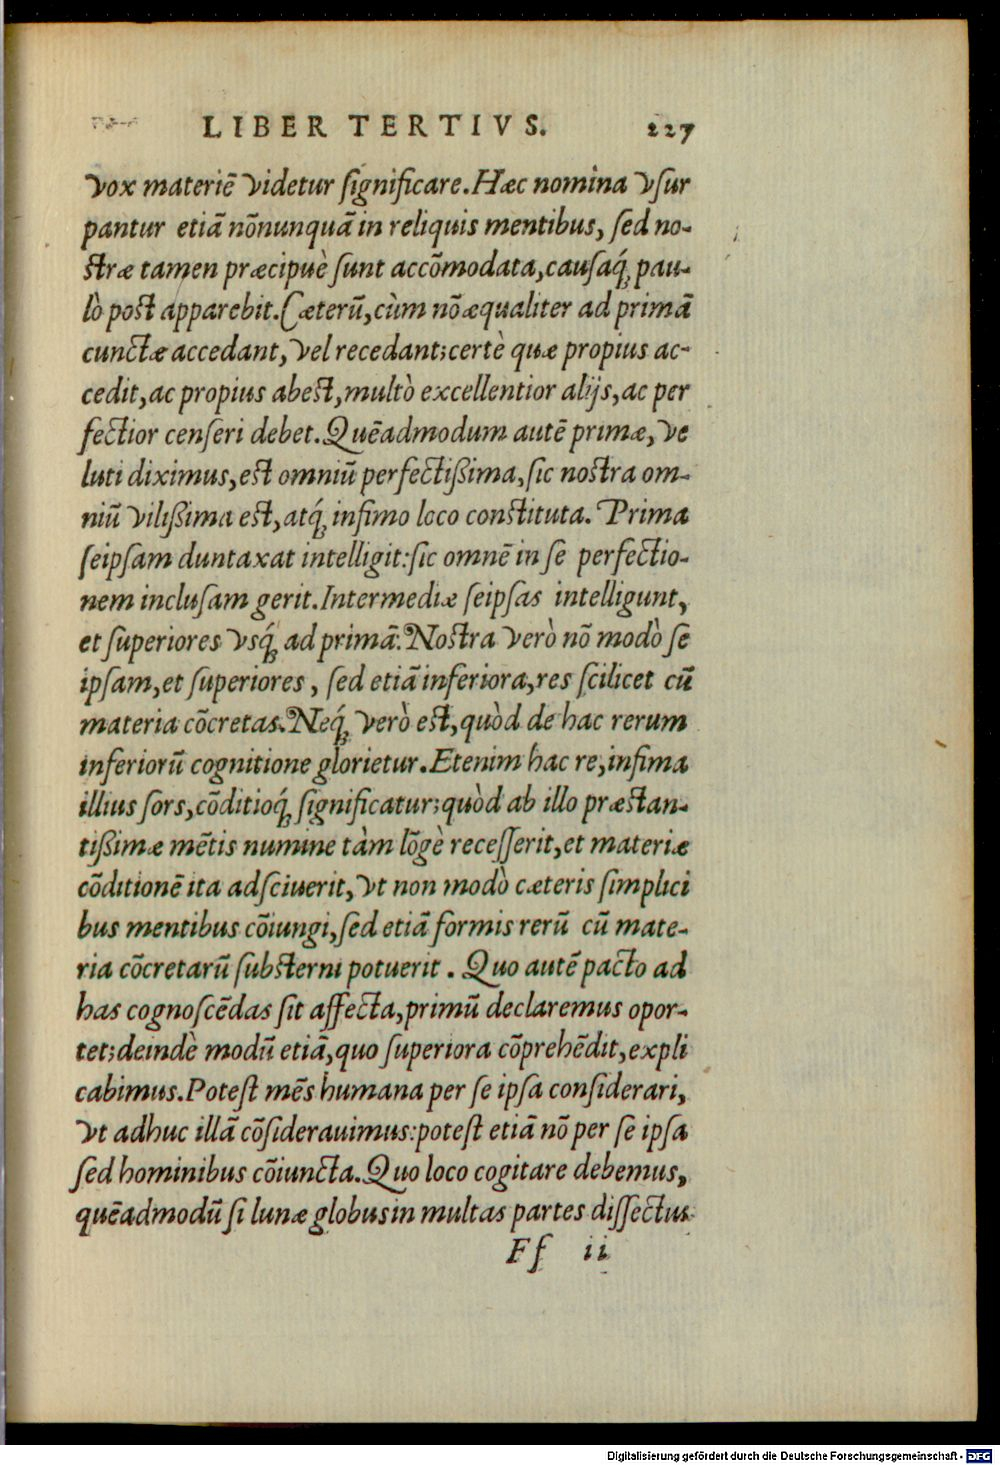 LIBER TERTIVS. 227
vox materiē videtur ſignificare. Hæc nomina vſur
pantur etiā nōnunquā in reliquis mentibus, ſed no-
ſtræ tamen præcipuè ſunt accōmodata, cauſaq́ꝫ pau-
lò poſt apparebit. Cæterū, cùm nō æqualiter ad primā
cunctæ accedant, vel recedant; certè quæ propius ac-
cedit, ac propius abeſt, multò excellentior alijs, ac per
fectior cenſeri debet. Quēadmodum autē primæ, ve
luti diximus, eſt omniū perfectißima, ſic noſtra om-
niū vilißima eſt, atq́ꝫ infimo loco conſtituta. Prima
ſeipſam duntaxat intelligit: ſic omnē in ſe perfectio-
nem incluſam gerit. Intermediæ ſeipſas intelligunt,
et ſuperiores vſq́ꝫ ad primā. Noſtra verò nō modò ſe
ipſam, et ſuperiores, ſed etiā inferiora, res ſcilicet cū
materia cōcretas. Neq́ꝫ verò eſt, quòd de hac rerum
inferiorū cognitione glorietur. Etenim hac re, infima
illius ſors, cōditioq́ꝫ ſignificatur; quòd ab illo præſtan-
tißimæ mētis numine tàm lōgè receſſerit, et materiæ
cōditionē ita adſciuerit, vt non modò cæteris ſimplici
bus mentibus cōiungi, ſed etiā formis rerū cū mate-
ria cōcretarū ſubſterni potuerit. Quo autē pacto ad
has cognoſcēdas ſit affecta, primū declaremus opor-
tet; deindè modū etiā, quo ſuperiora cōprehēdit, expli
cabimus. Poteſt mēs humana per ſe ipſa conſiderari,
vt adhuc illā cōſiderauimus: poteſt etiā nō per ſe ipſa
ſed hominibus cōiuncta. Quo loco cogitare debemus,
quēadmodū ſi lunæ globus in multas partes diſſectus
Ff ii
Digitalisierung gefördert durch die Deutsche Forschungsgemeinschaft - DFG